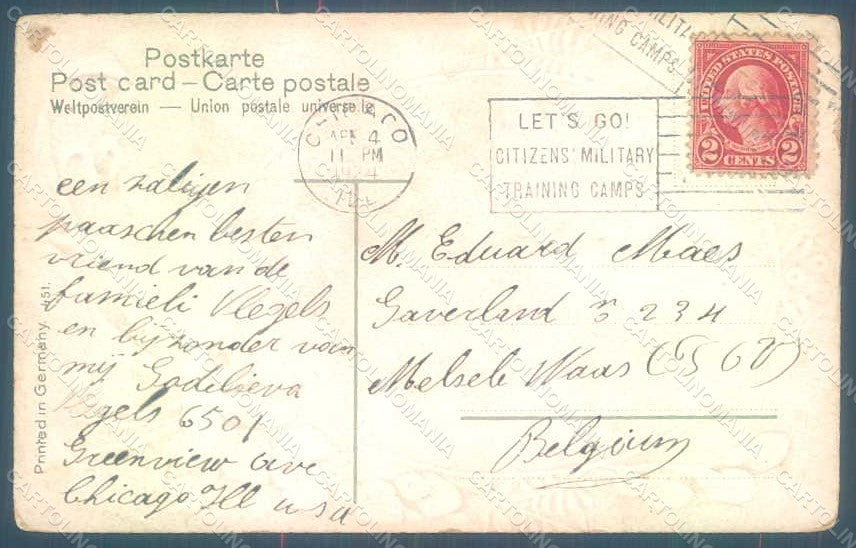 Postkarte
Post card – Carte postale
Weltpostverein — Union postale universelle
CHICAGO
APR 4
11 PM
1924
ILL
LET'S GO!
CITIZENS' MILITARY
TRAINING CAMPS
MILITA
NING CAMPS
UNITED STATES POSTAGE
2 CENTS 2
een zaligen
paaschen besten
vriend van de
famieli Vlegels
en bijzonder van
mij Godelieva
Vlegels 6501
Greenview ave
Chicago Ill usa
M. Eduard Maes
Gaverland n° 234
Melsele Waas
Belgium
Printed in Germany 451.
CARTOLINOMANIA